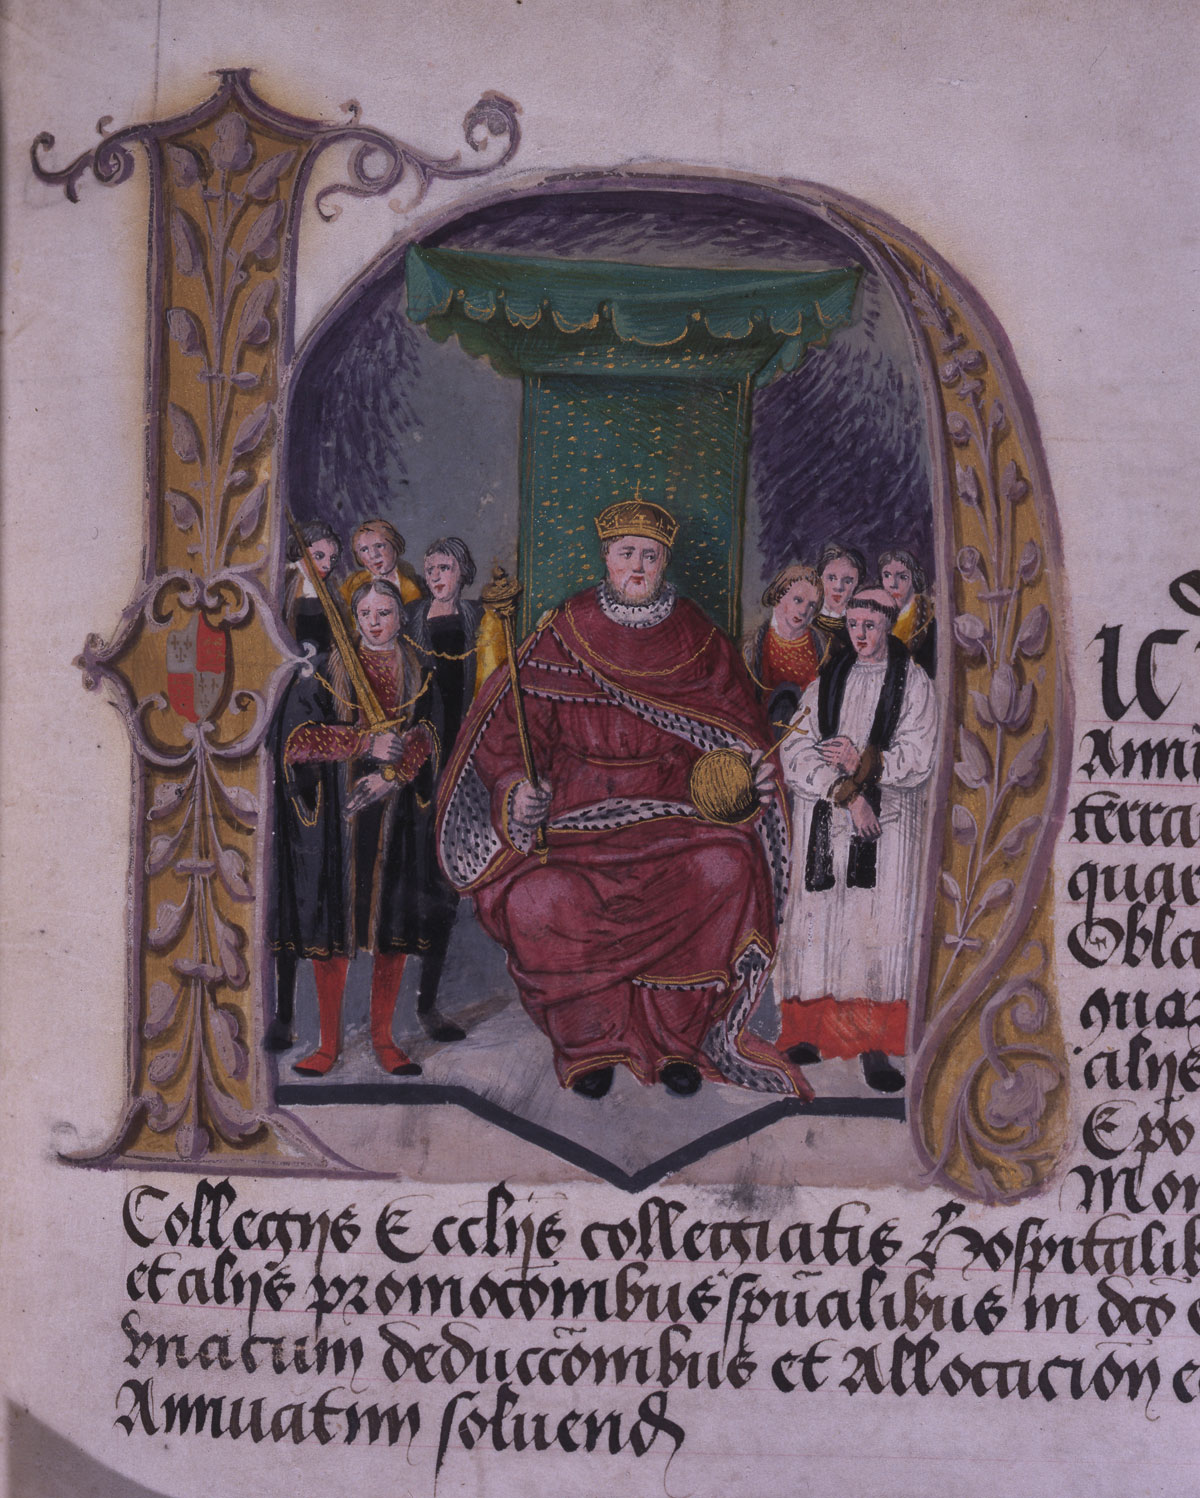 uc
Annu
terra
quar
Obla
quaz
alijs
Epo
Mon
Collegijs Ecclijs collegiatis Hospitalib
et alijs promocõnibus spũalibus in dco
vnacum deduccõnibus et Allocacion
Annuatim soluend